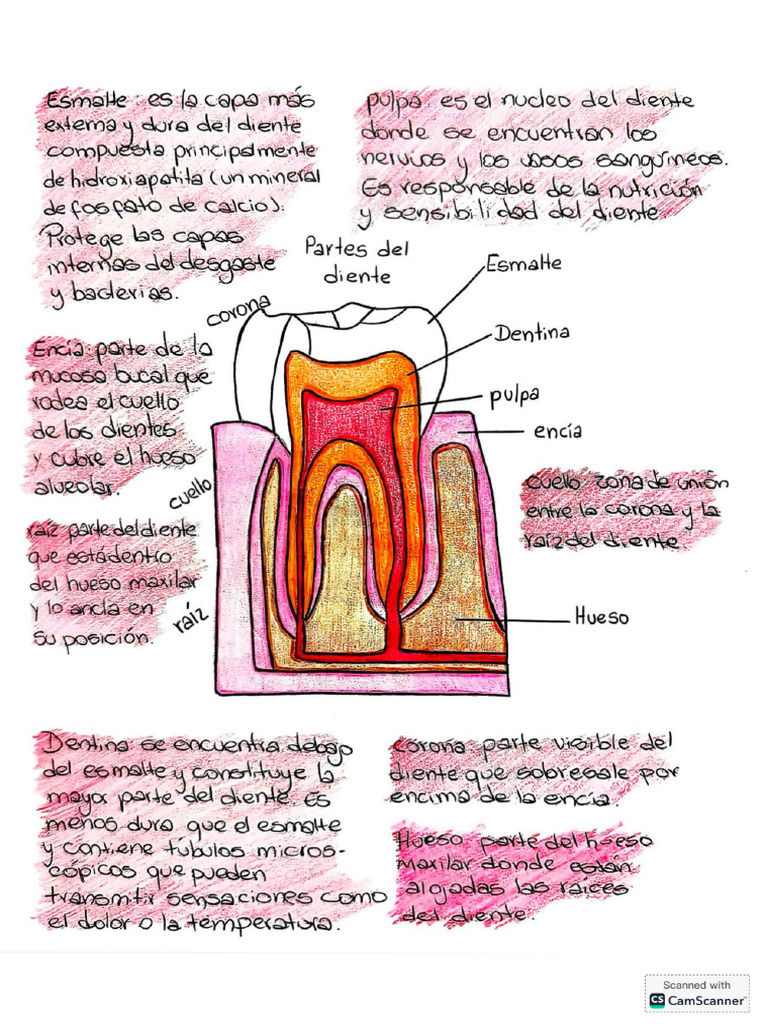 Esmalte: es la capa más
externa y dura del diente
compuesta principalmente
de hidroxiapatita (un mineral
de fosfato de calcio).
Protege las capas
internas del desgaste
y bacterias.
pulpa: es el nucleo del diente
donde se encuentran los
nervios y los vasos sanguíneos.
Es responsable de la nutrición
y sensibilidad del diente
Partes del
diente
Esmalte
corona
Dentina
pulpa
encía
Encía: parte de la
mucosa bucal que
rodea el cuello
de los dientes
y cubre el hueso
alveolar.
cuello
cuello zona de unión
entre la corona y la
raíz del diente
raíz parte del diente
que está dentro
del hueso maxilar
y lo ancla en
su posición.
raíz
Hueso
Dentina: se encuentra debajo
del esmalte y constituye la
mayor parte del diente. Es
menos dura que el esmalte
y contiene túbulos micros-
cópicos que pueden
transmitir sensaciones como
el dolor o la temperatura.
corona: parte visible del
diente que sobresale por
encima de la encía.
Hueso parte del hueso
maxilar donde están
alojadas las raíces
del diente.
Scanned with
CS CamScanner